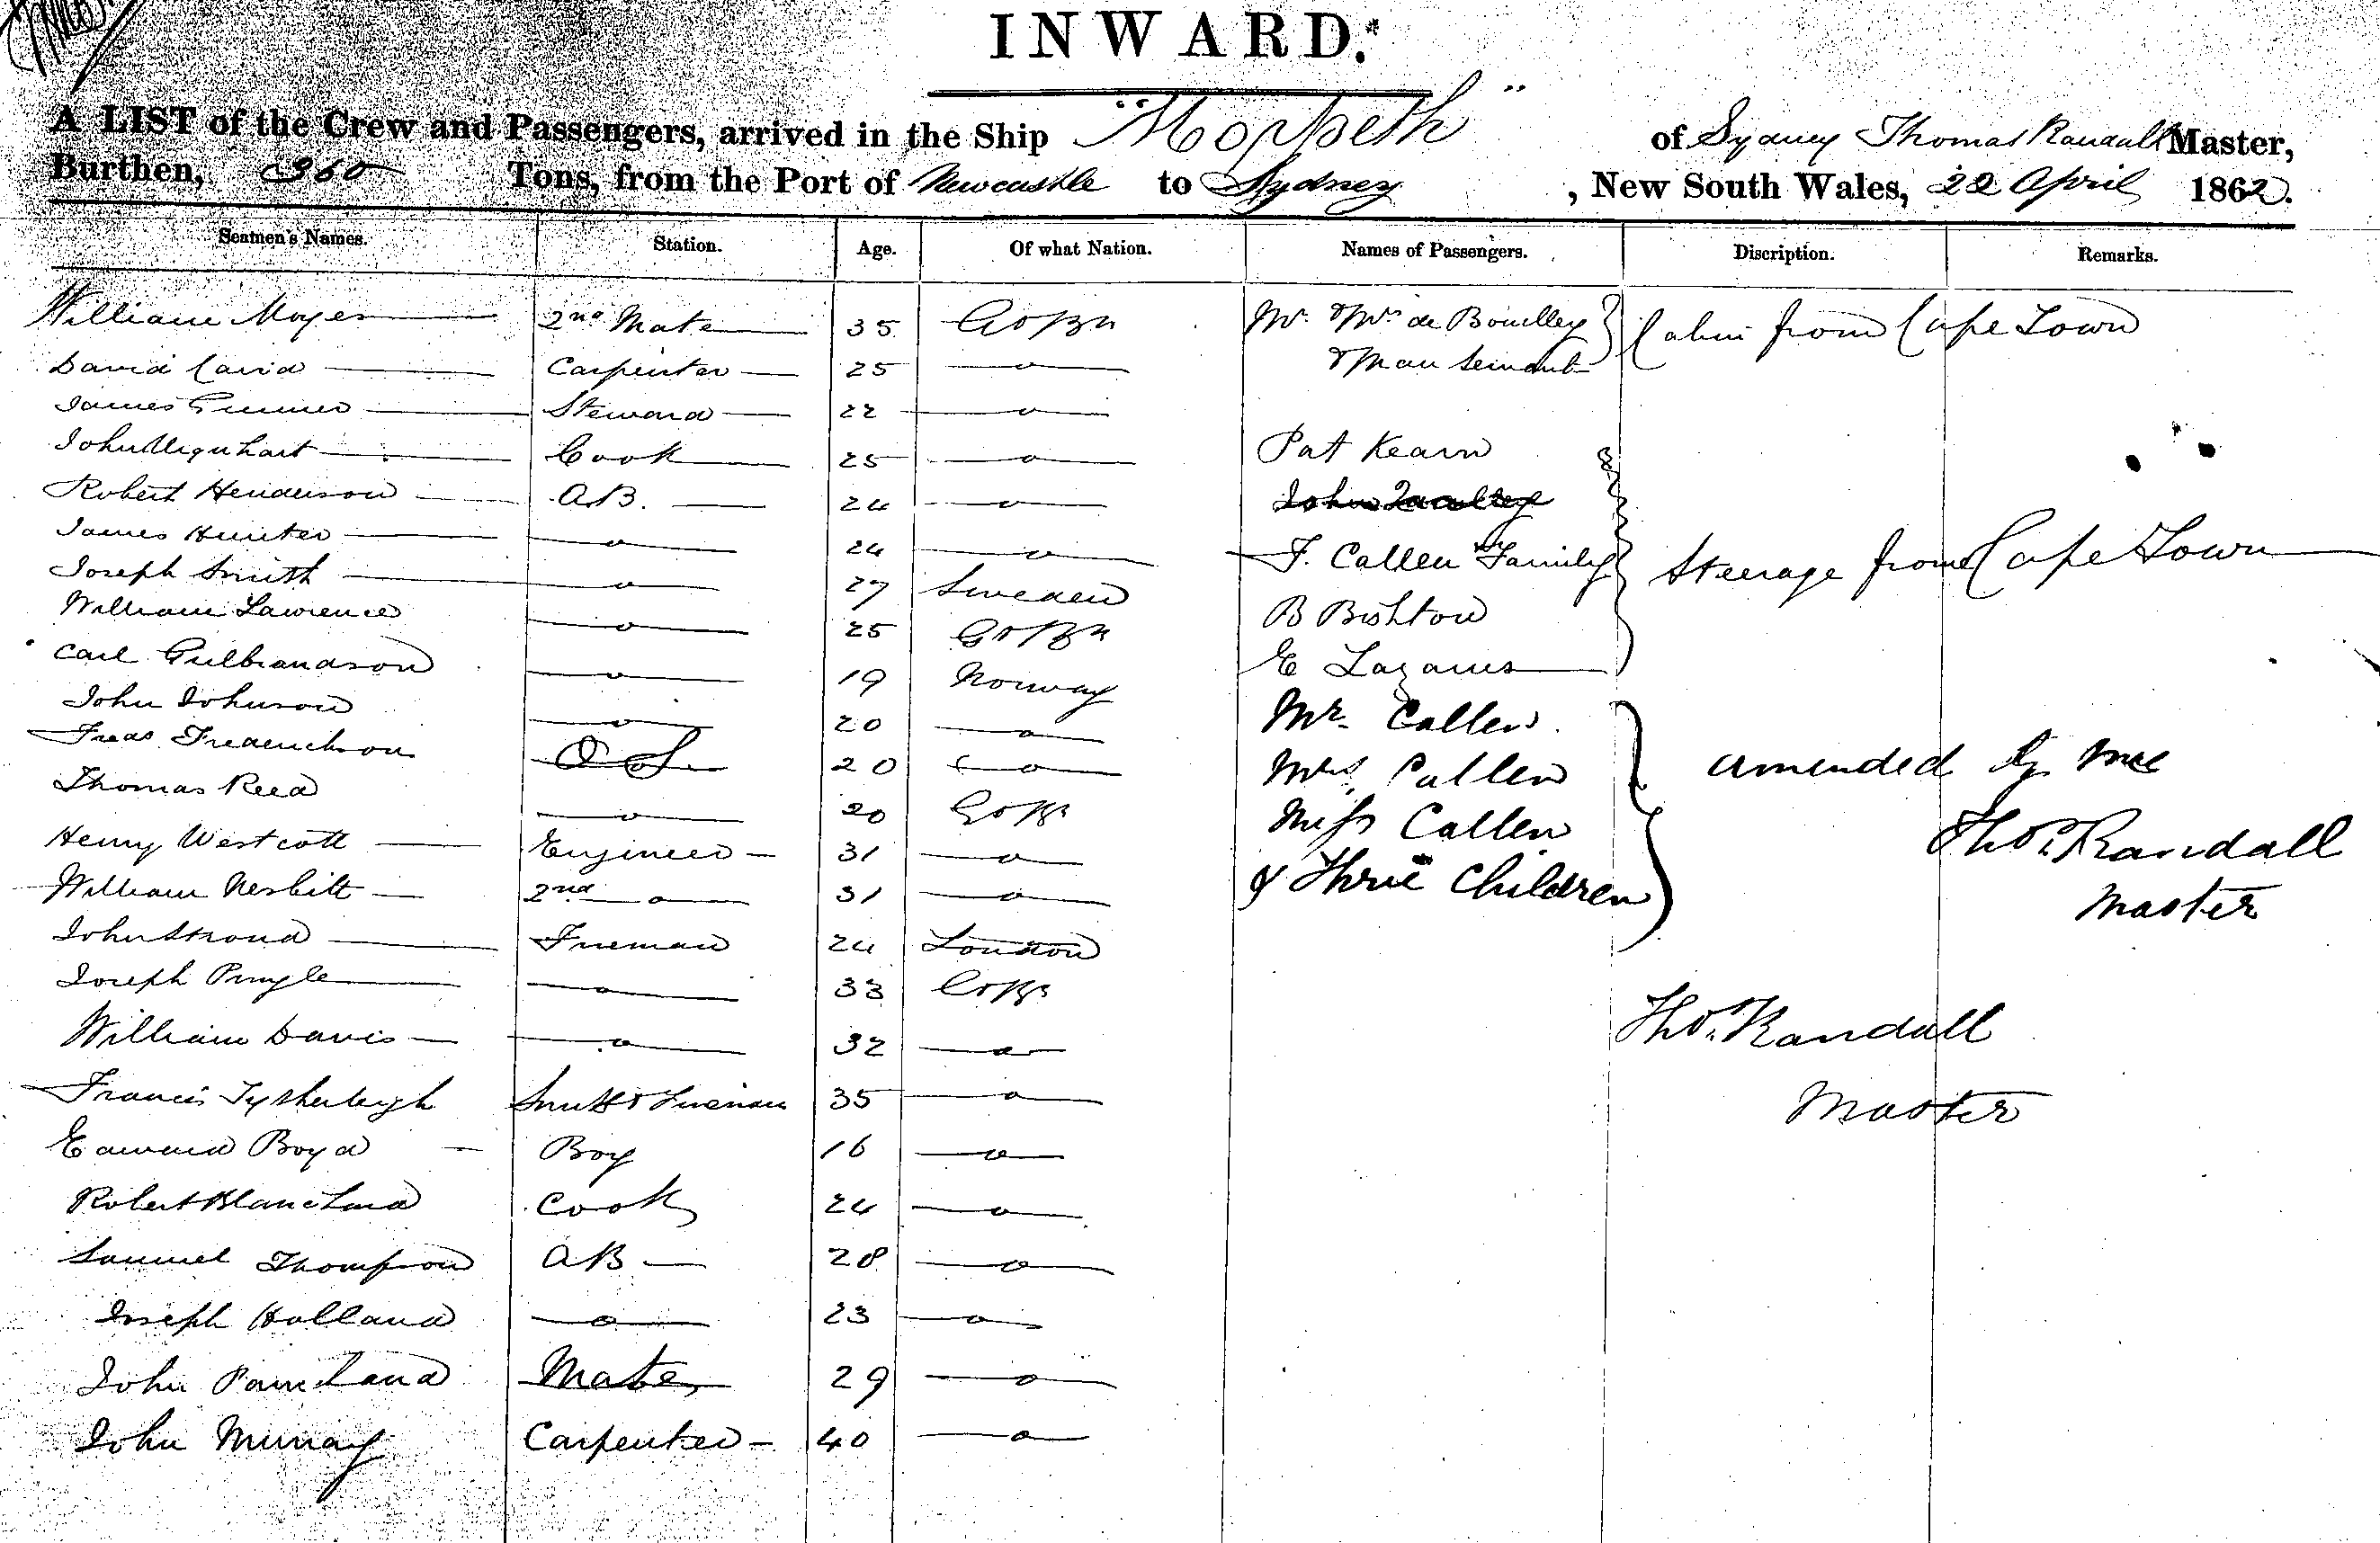 INWARD.*
A LIST of the Crew and Passengers, arrived in the Ship "Morpeth" of Sydney Thomas Randall Master,
Burthen, 360 Tons, from the Port of Newcastle to Sydney, New South Wales, 22 April 1862.
Seamen's Names. Station. Age. Of what Nation. Names of Passengers. Discription. Remarks.
William Moyes 2nd Mate 35 Gt Bn Mr & Mrs de Boulley Cabin from Cape Town
& Man Servant
David Caird Carpenter 25 — o —
James Gunner Steward 22 — o —
John Urquhart Cook 25 — o — Pat Kearn
Robert Henderson A.B. 24 — o — John
James Hunter — o — 24 — o — F. Callen & Family Steerage from Cape Town
Joseph Smith — o — 27 Sweden
William Lawrence — o — 25 Gt Bn B Bishton
Carl Gulbrandson — o — 19 Norway E Lazarus
John Johnson — o — 20 — o — Mr. Callen
Fredk Frederickson O S 20 — o — Mrs. Callen amended by me
Thomas Reed — o — 20 Gt Br Miss Callen Thos. Randall
Henry Westcott Engineer 31 — o — & Three Children Master
William Nesbitt 2nd — o — 31 — o —
John Stroud Fireman 24 London
Joseph Pringle — o — 33 Gt Br
William Davis — o — 32 — o — Thos. Randall
Francis Smith & Fireman 35 — o — Master
Edward Boyd Boy 16 — o —
Robert Blanchard Cook 24 — o —
Samuel Thompson AB 28 — o —
Joseph Holland — o — 23 — o —
John Mate 29 — o —
John Murray Carpenter 40 — o —